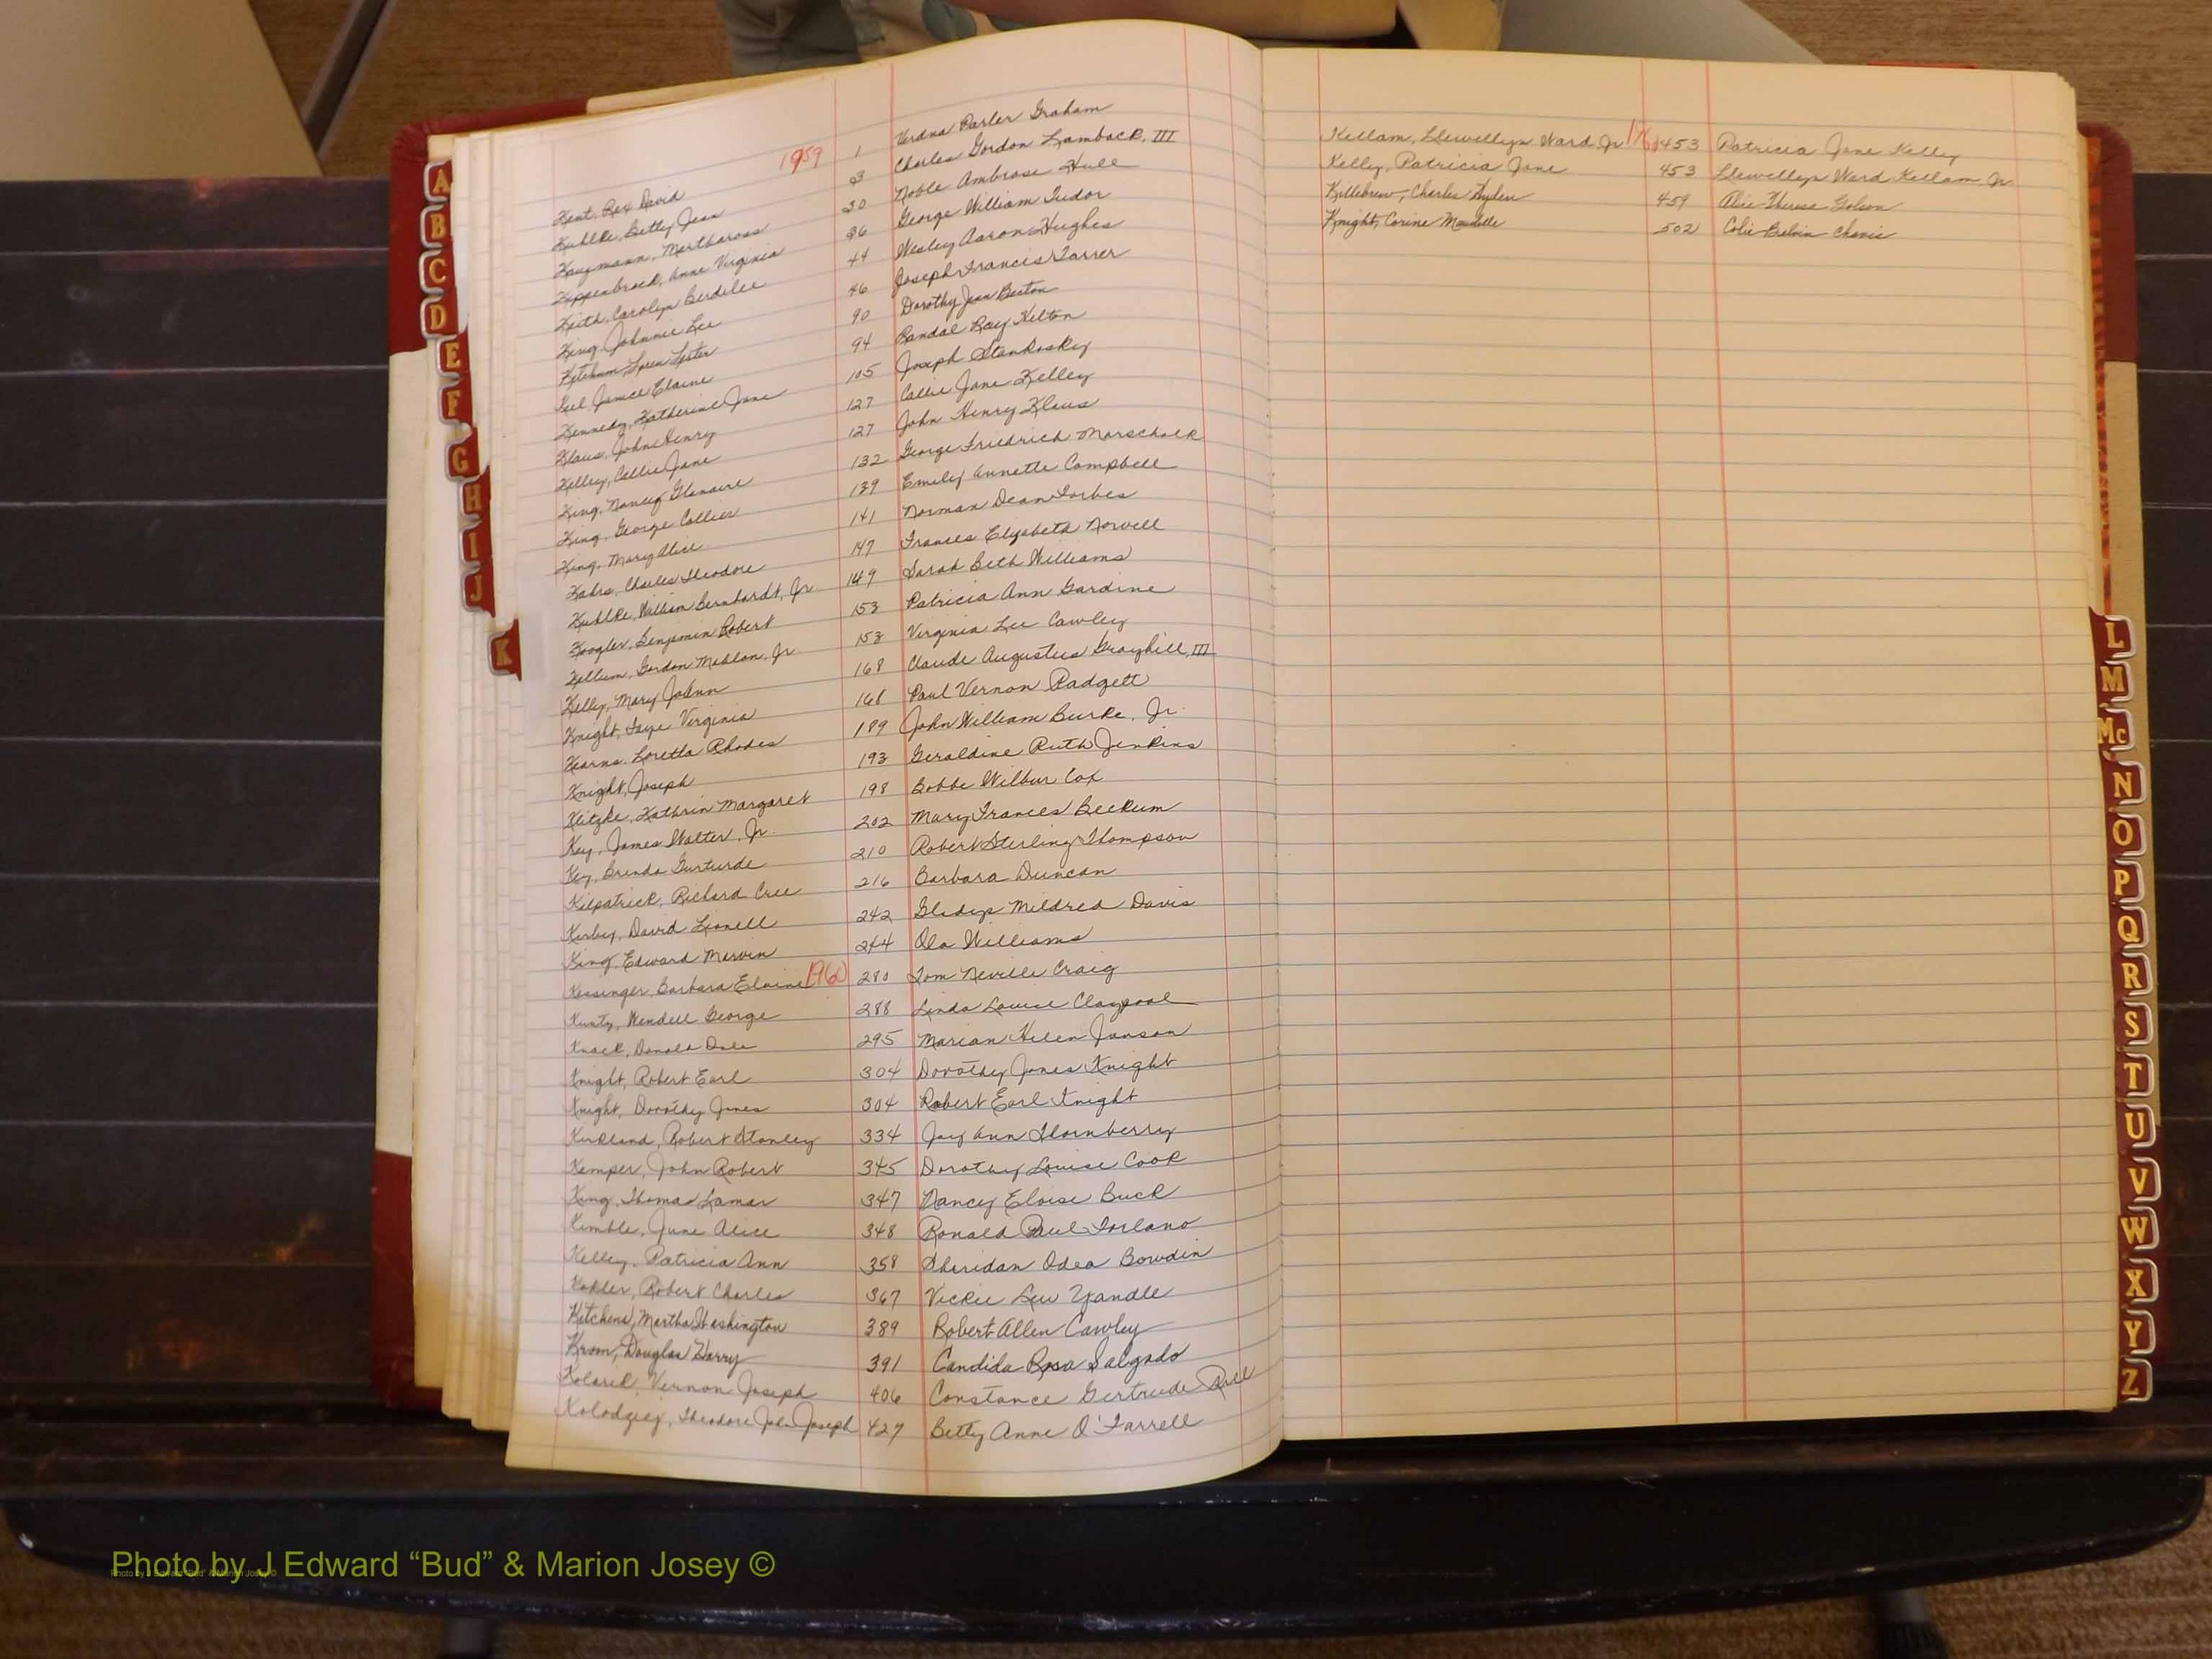 1959
Kent, Rex David 1 Verdna Parler Graham
Kuhlke, Betty Jean 3 Charles Gordon Lamback, III
Kaufmann, Martharose 30 Noble Ambrose Hull
Koppenbrock, Anne Virginia 36 George William Tudor
Keith, Carolyn Berdelee 44 Wesley Aaron Hughes
King, Johnnie Lee 46 Joseph Francis Farrer
Ketchum Loren Lester 90 Dorothy Jean Beeton
Keel Janice Elaine 94 Randal Ray Hilton
Kennedy, Katherine Jane 105 Joseph Stankosky
Klaus, John Henry 127 Callie Jane Kelley
Kelley, Callie Jane 127 John Henry Klaus
King, Nancy Glenaire 132 George Friedrich Marschalk
King, George Collier 139 Emily Annette Campbell
King, Mary Alice 141 Norman Dean Forbes
Kahrs, Charles Theodore 147 Frances Elizabeth Norvell
Kuhlke, William Bernhardt, Jr. 149 Sarah Beth Williams
Koogler, Benjamin Robert 153 Patricia Ann Gardine
Kellum, Gordon Mahlon, Jr. 153 Virginia Lee Cawley
Kelly, Mary JoAnn 168 Claude Augustus Grayhill, III
Knight, Faye Virginia 168 Paul Vernon Padgett
Kearns, Loretta Rhodes 189 John William Burke, Jr.
Knight, Joseph 193 Geraldine Ruth Jenkins
Klitzke, Kathrin Margaret 198 Bobbe Wilbur Cox
Key, James Walter, Jr. 202 Mary Frances Beckum
Key, Brenda Gurturde 210 Robert Sterling Thompson
Kilpatrick, Richard Cree 216 Barbara Duncan
Kirby, David Lionell 242 Gladys Mildred Davis
King, Edward Marvin 244 Ola Williams
Kessinger, Barbara Elaine 1960 280 Tom Neville Craig
Kuntz, Wendell George 288 Linda Louise Claypool
Knack, Donald Dale 295 Marian Helen Janson
Knight, Robert Earl 304 Dorothy Jones Knight
Knight, Dorothy Jones 304 Robert Earl Knight
Kirkland, Robert Stanley 334 Joy Ann Thornberry
Kemper, John Robert 345 Dorothy Louise Cook
King, Thomas Lamar 347 Nancy Eloise Buck
Kimble, June Alice 348 Ronald Paul Forlano
Kelley, Patricia Ann 358 Sheridan Odea Bowdin
Kohler, Robert Charles 367 Vickie Lew Yandle
Kitchens, Martha Washington 389 Robert Allen Cawley
Krom, Douglas Harry 391 Candida Rosa Salgado
Kolarik, Vernon Joseph 406 Constance Gertrude
Kolodziej, Theodore John Joseph 427 Betty Anne O'Farrell
Kellam, Llewellyn Ward Jr. 453 Patricia Jane Kelley
Kelley, Patricia Jane 453 Llewellyn Ward Kellam, Jr.
Killebrew, Charles Hyden 459 Alice Theresa Golson
Knight, Corine Maudelle 502 Colie Belvin Chavis
A
B
C
D
E
F
G
H
I
J
K
L
M
Mc
N
O
P
Q
R
S
T
U
V
W
X
Y
Z
Photo by J Edward “Bud” & Marion Josey ©
Photo by J Edward “Bud” & Marion Josey ©